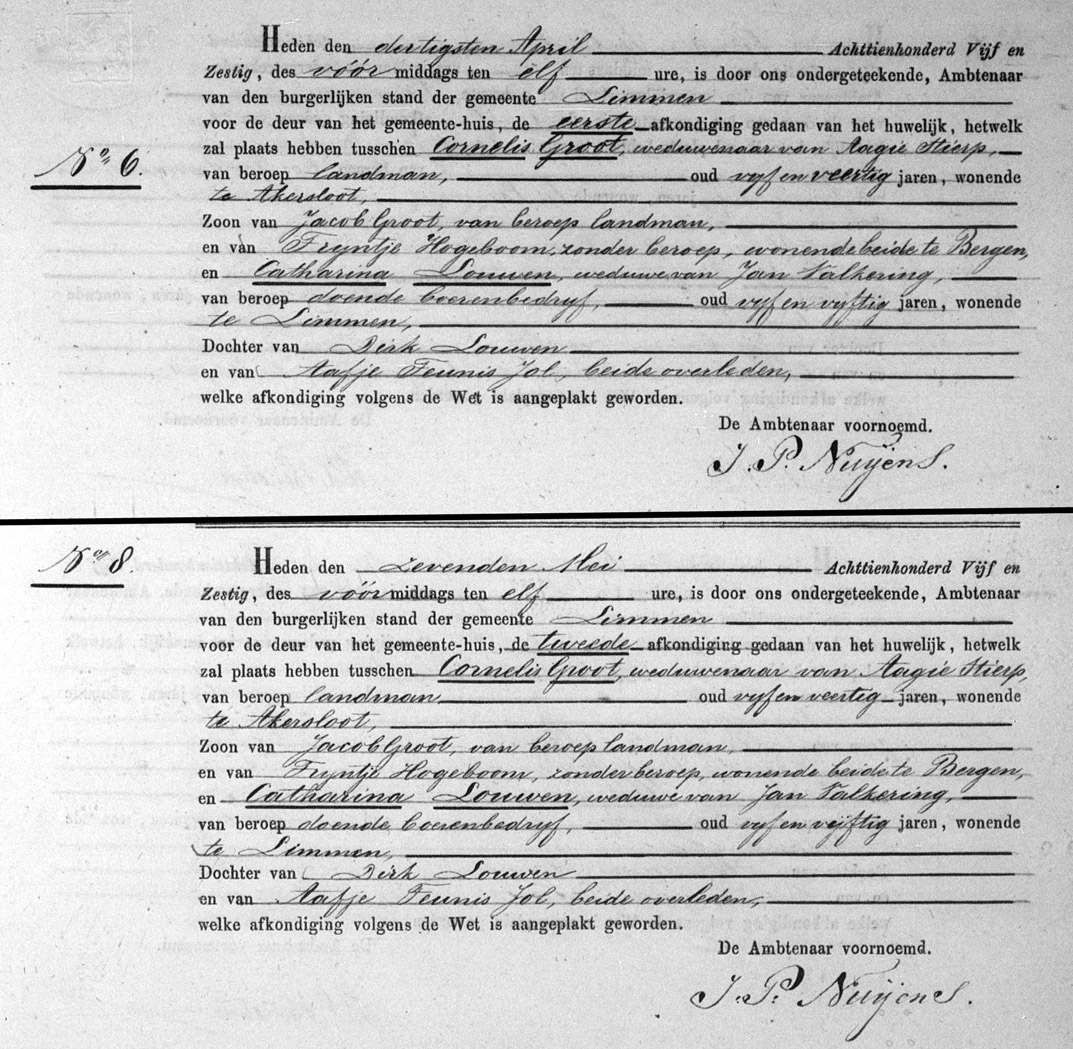 Heden den dertigsten April Achttienhonderd Vijf en
Zestig, des vóór middags ten elf ure, is door ons ondergeteekende, Ambtenaar
van den burgerlijken stand der gemeente Limmen
voor de deur van het gemeente-huis, de eerste afkondiging gedaan van het huwelijk, hetwelk
No 6.
zal plaats hebben tusschen Cornelis Groot, weduwenaar van Aagie Stierp,
van beroep landman, oud vyf en veertig jaren, wonende
te Akersloot,
Zoon van Jacob Groot, van beroep landman,
en van Tryntje Hogeboom, zonder beroep, wonende beide te Bergen,
en Catharina Louwen, weduwe van Jan Valkering,
van beroep doende boerenbedryf, oud vyf en vyftig jaren, wonende
te Limmen,
Dochter van Dirk Louwen
en van Aafje Teunis Jol, beide overleden,
welke afkondiging volgens de Wet is aangeplakt geworden.
De Ambtenaar voornoemd.
J. P. Nuyens.
No 8.
Heden den zevenden Mei Achttienhonderd Vijf en
Zestig, des vóór middags ten elf ure, is door ons ondergeteekende, Ambtenaar
van den burgerlijken stand der gemeente Limmen
voor de deur van het gemeente-huis, de tweede afkondiging gedaan van het huwelijk, hetwelk
zal plaats hebben tusschen Cornelis Groot, weduwenaar van Aagie Stierp,
van beroep landman, oud vyf en veertig jaren, wonende
te Akersloot,
Zoon van Jacob Groot, van beroep landman,
en van Tryntje Hogeboom, zonder beroep, wonende beide te Bergen,
en Catharina Louwen, weduwe van Jan Valkering,
van beroep doende boerenbedryf, oud vyf en vyftig jaren, wonende
te Limmen,
Dochter van Dirk Louwen
en van Aafje Teunis Jol, beide overleden,
welke afkondiging volgens de Wet is aangeplakt geworden.
De Ambtenaar voornoemd.
J. P. Nuyens.